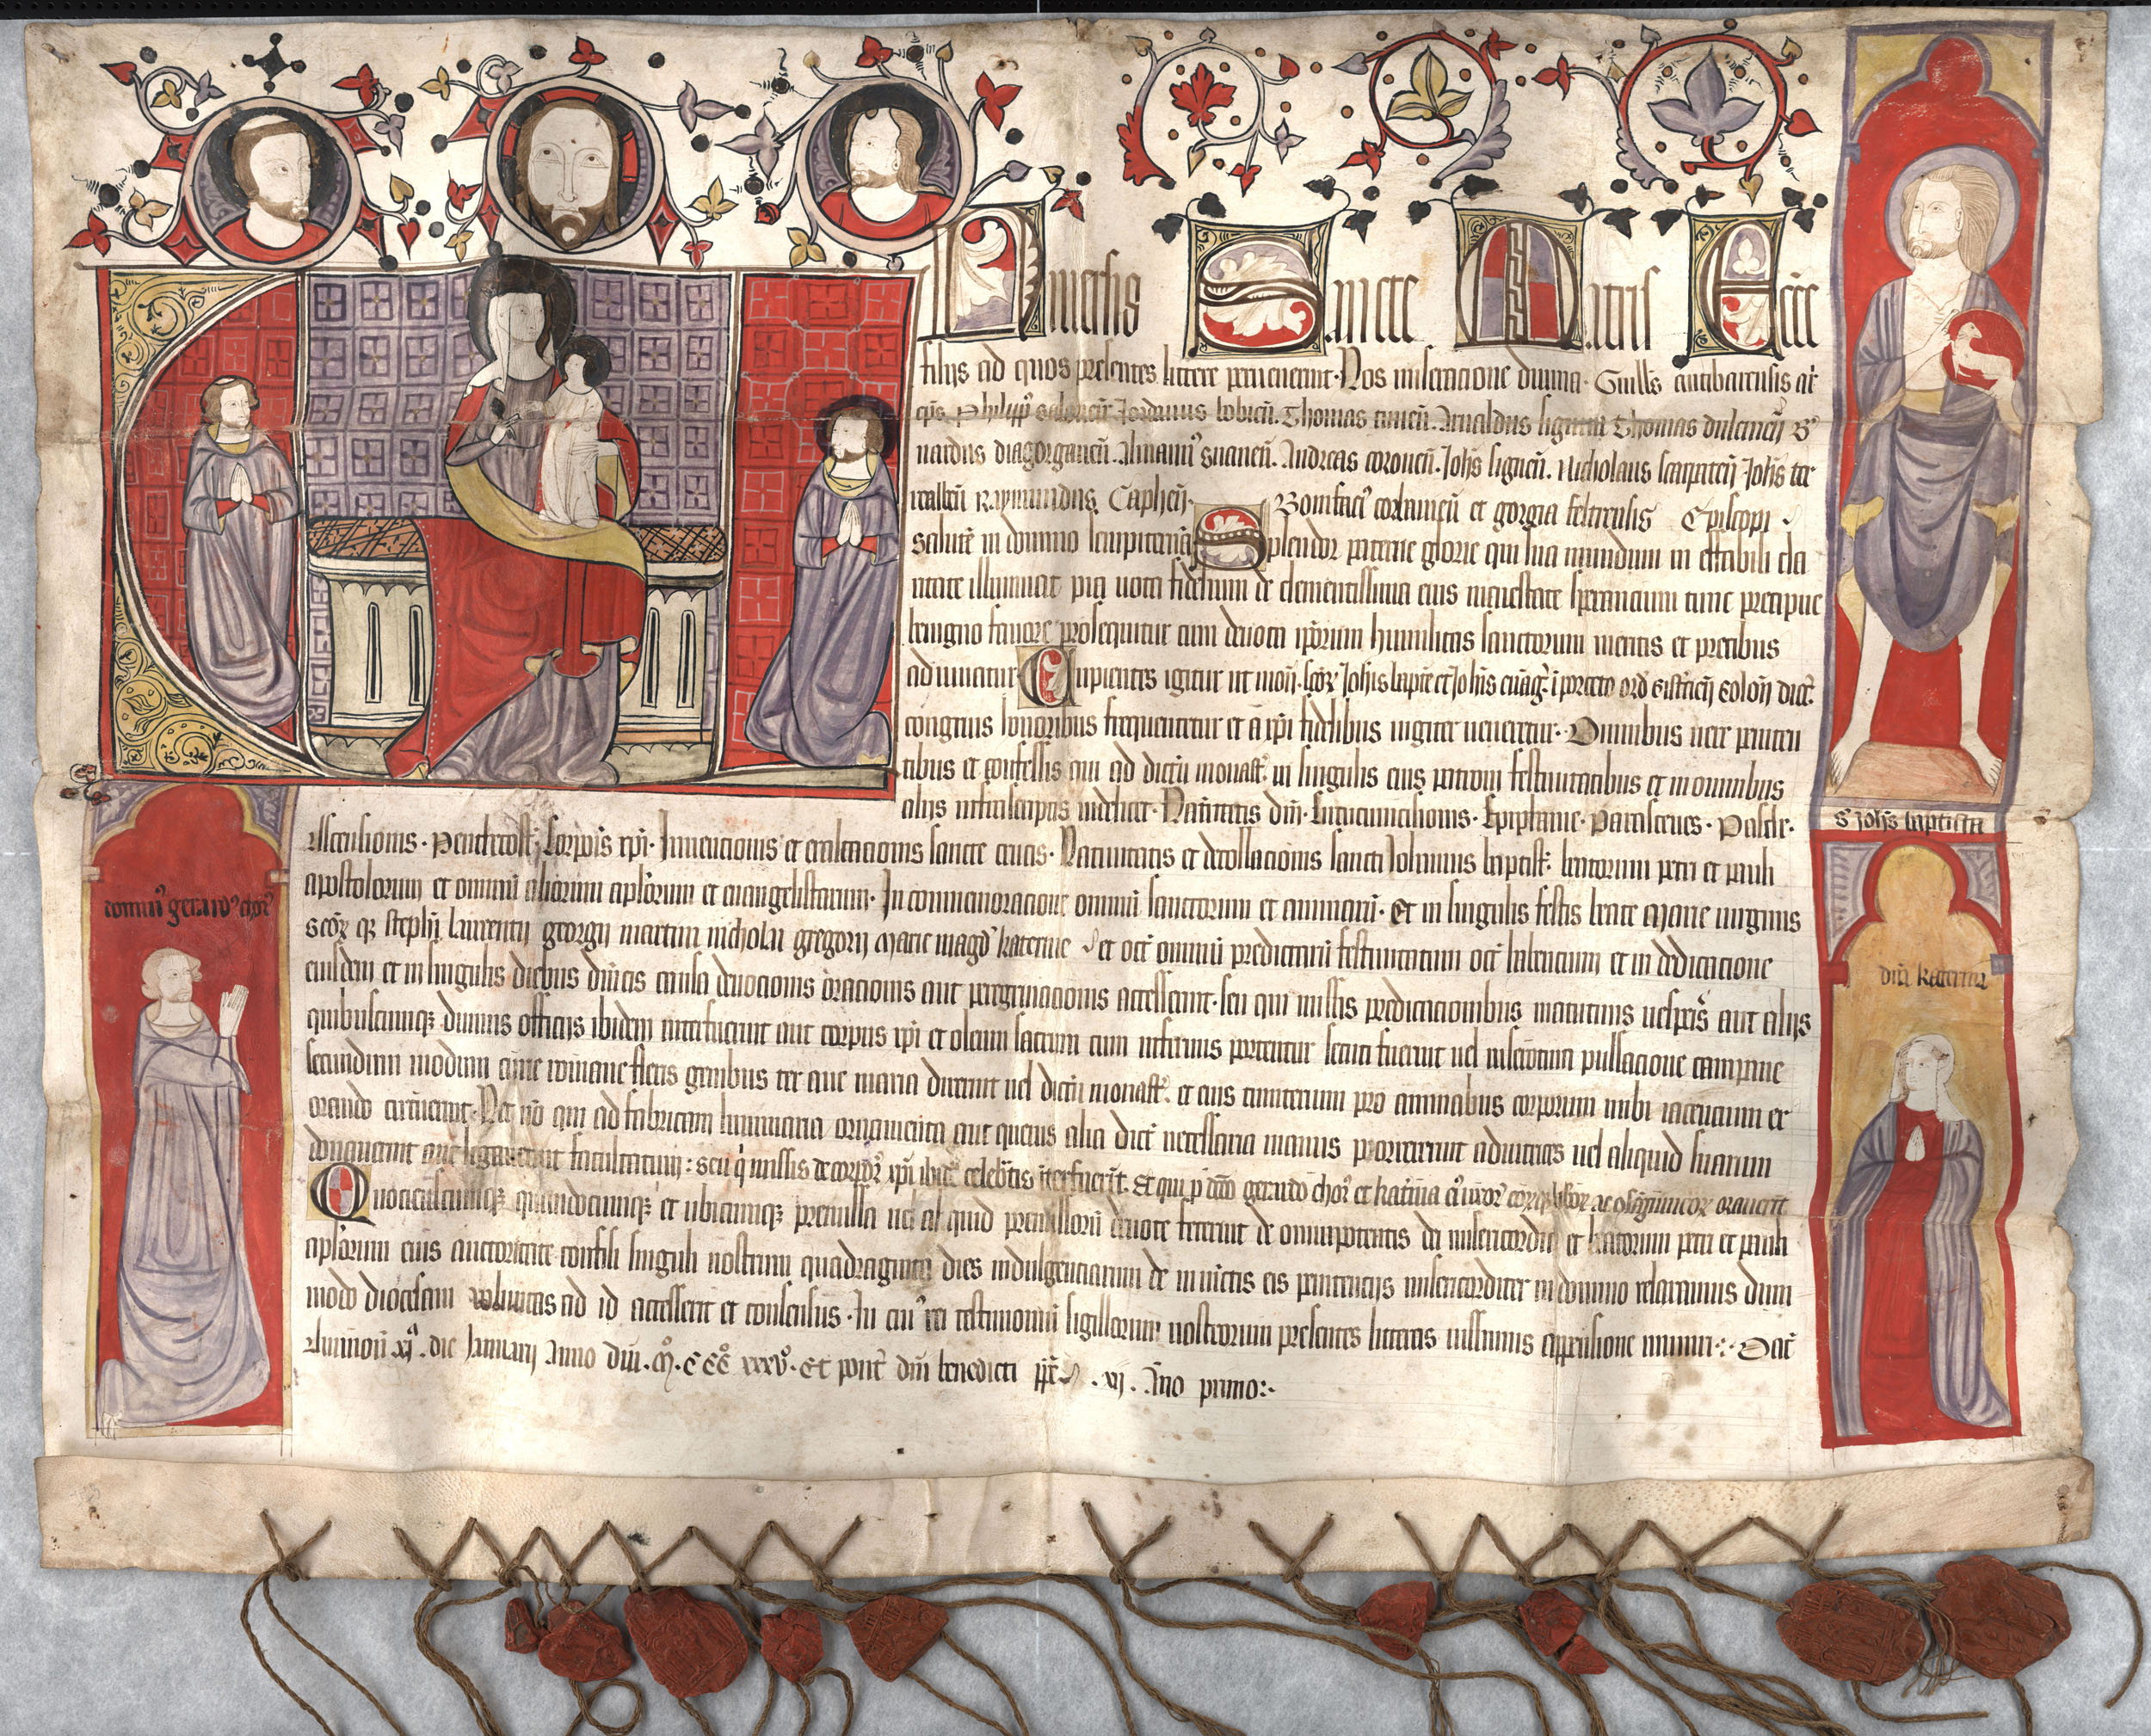 Unıuersis Sancte Matris Eccͤe
filijs ad quos presentes littere peruenerint. Nos miseracione diuina. Guillͫs antibarensis ar
cp̄s Philipp9 salonen̄. Jordanus bobien̄. Thomas tinien̄. Arnaldus Thomas dulcinen̄ B
nardus diagorganen̄. Alman9 suanen̄. Andreas coronen̄. Joh̄s siguen̄. Nicholaus scarpaten̄ Joh̄s ter
rallen̄ Raymundus Caphen̄. Bonifaci9 corbanien̄ et gorgia feltrensis Episcopi.
salutē in domino sempiternā Splendor paterne glorie qui sua mundum in effabili cla
ritate illuminat pia uota fidelium de clementissima eius maiestate sperancium tunc precipue
benigno fauore prosequitur cum deuota ip̄orum humilitas sanctorum meritis et precibus
adiuuatur Cupientes igitur ut mon̄. sc̄oꝝ Joh̄is bapte et Joh̄is euāg. ī porceto ord cistercīj Colon̄ dioc̄.
congruis honoribus frequentetur et a xp̄i fidelibus iugiter ueneretur. Omnibus uere peniten
tibus et confessis qui ad dictū monast. in singulis eius patroni festiuitatibus et in omnibus
alijs infrascriptis uidelicet. Natiuitatis dn̄i. Circumcisionis. Epiphanie. Parasceues. Pasche.
Ascensionis. Penthecost. Corporis xp̄i. Inuencionis et exaltacionis sancte crucis. Natiuitatis et decollacionis sancti Johannis baptist. beatorum petri et pauli
apostolorum et omniū aliorum apl̄orum et euangelistarum. In commemoracione omniū sanctorum et animarū. Et in singulis festis beate Marie uirginis
Sc̄oꝝ qꝫ stephī laurentij georgij martini nicholai gregorij Marie magd katerine et oct̄ omniū predictarū festiuitatum oct̄ habentium et in dedicacione
eiusdem et in singulis diebus dn̄icis causa deuocionis oracionis aut peregrinacionis accesserint. seu qui missis predicacionibus matutinis uesperis aut alijs
quibuscunqꝫ diuinis officijs ibidem interfuerint aut corpus xp̄i et oleum sacrum cum infirmis portentur secuti fuerint uel in serotina pulsacione campane
secundum modum curie romane flexis genibus ter aue maria dixerint uel dictū monast. et eius cimiterium pro animabus corporum inibi iacentium ex
orando circuierint. Nec nō qui ad fabricam luminaria ornamenta aut queuis alia dict̄ necessaria manus porrexerint adiutrices uel aliquid suarum
donauerint aut legauerint facultatum: seu q̄ missis de corpor̄ xp̄i ibid celebrātis īterfuerīt. Et qui p dn̄o gerardo chor9 et katīna ei9 uxor orauerīt
Quociēscumqꝫ quandocumqꝫ et ubicumqꝫ premissa uel aliquid premissorū deuote fecerint de omnipotentis dei misericordia et beatorum petri et pauli
apl̄orum eius auctoritate confisi singuli nostrum quadraginta dies indulgenciarum de iniunctis eis penitencijs misericorditer in domino relaxamus dum
modo diocesani uoluntas ad id accesserit et consensus. In cui9 rei testimoniū sigillorum nostrorum presentes litteras iussimus appensione muniri. Dat̄
Auinion̄ xj. die Januarij Anno dn̄i. M. CCC xxxv. Et pont̄ dn̄i benedicti pp̄e. xij. Āno primo.
domin9 gerard9 chor9
S Joh̄s baptista
dn̄a katerina